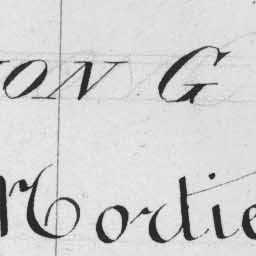 ION G
Mortie